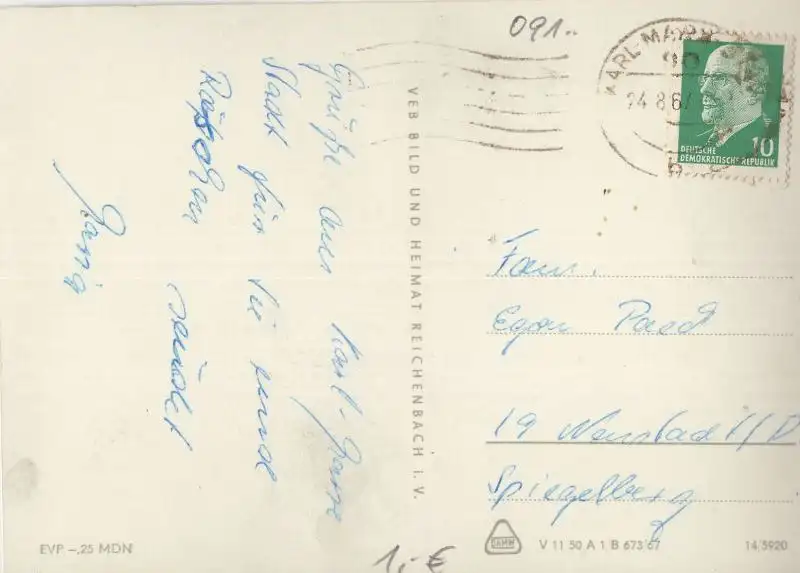 091..
KARL-MARX
90
24.8.67
DEUTSCHE
DEMOKRATISCHE REPUBLIK
10
Grüße aus Karl-Marx
Stadt für Sie
sendet
VEB BILD UND HEIMAT REICHENBACH I. V.
Fam.
Egon
19 Neustadt i/D
Spiegelberg
EVP –,25 MDN
1,- €
V 11 50 A 1 B 673/67
14/5920